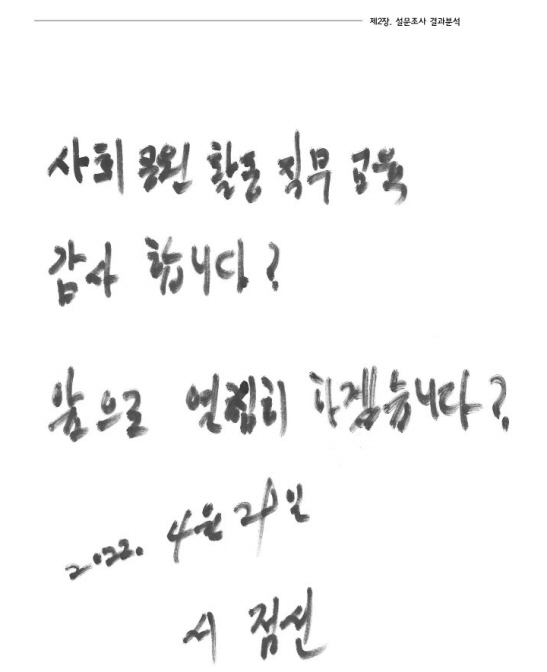 제2장. 설문조사 결과분석
사회 공원 활동 직무 교육
감사 합니다?
앞으로 열심히 하겠습니다?
2022. 4월 21일
서 점선